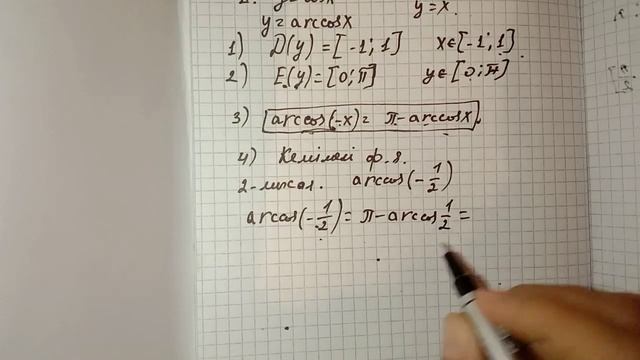 y = arccosx y = x
1) D(y) = [-1; 1] x∈[-1; 1]
2) E(y) = [0; π] y∈[0; π]
3) arccos(-x) = π - arccosx
4) Кемімелі ф.я.
2-мысал. arccos(-1/2)
arccos(-1/2) = π - arccos 1/2 =